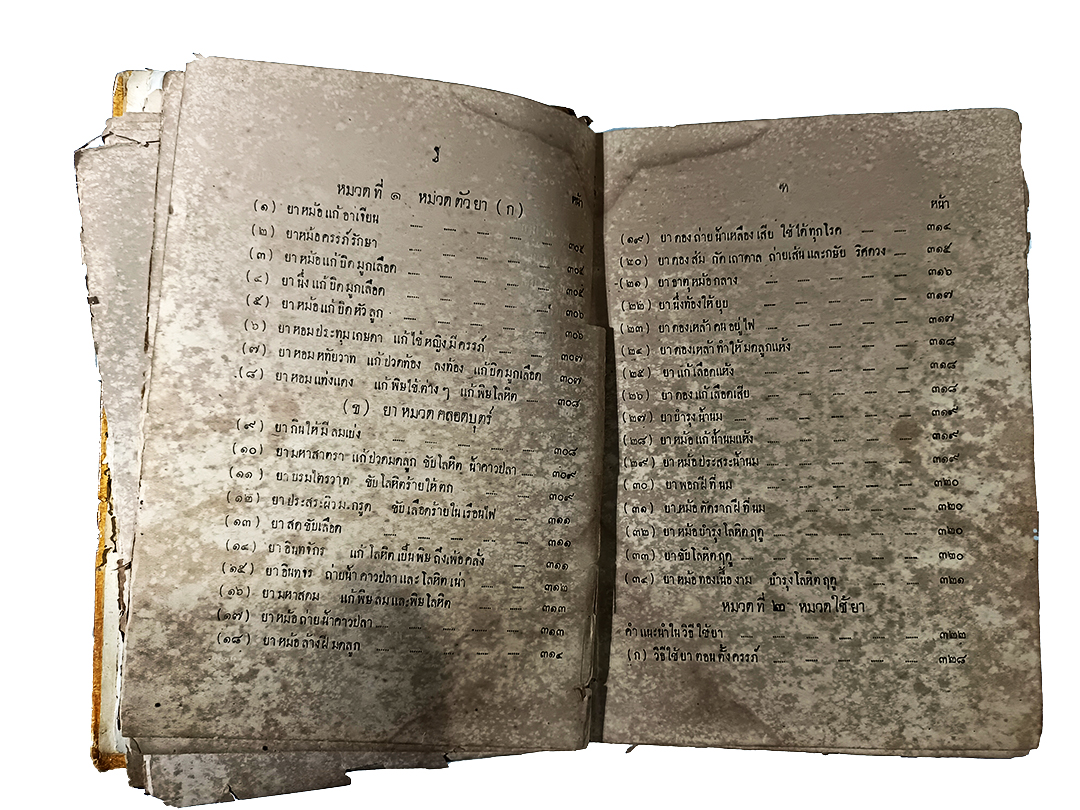 หมวดที่ ๑ หมวดตัวยา (ก)
หน้า
(๑) ยาหม้อแก้อาเจียน
(๒) ยาหม้อครรภ์รักษา ...... ...... ...... ...... ๓๐๕
(๓) ยาหม้อแก้บิดมูกเลือด ...... ...... ...... ๓๐๕
(๔) ยานึ่งแก้บิดมูกเลือด ...... ...... ...... ๓๐๕
(๕) ยาหม้อแก้บิดหัวลูก ...... ...... ...... ๓๐๖
(๖) ยาหอมประทุมเกษดา แก้ไข้หญิงมีครรภ์ ...... ...... ๓๐๗
(๗) ยาหอมหทัยวาท แก้ปวดท้อง ลงท้อง แก้บิดมูกเลือด ๓๐๗
(๘) ยาหอมแท่งแดง แก้พิษไข้ต่าง ๆ แก้พิษโลหิต ...... ๓๐๘
(ข) ยาหมวดคลอดบุตร์
(๙) ยากินให้มีลมเบ่ง ...... ...... ...... ๓๐๘
(๑๐) ยามหาสาดรา แก้ปวดมดลูก ขับโลหิต น้ำคาวปลา ...... ๓๐๙
(๑๑) ยาบรมไตรวาต ขับโลหิตร้ายให้ตก ...... ...... ๓๐๙
(๑๒) ยาประสะผิวมะกรูด ขับเลือดร้ายในเรือนไฟ ...... ๓๑๑
(๑๓) ยาสดขับเลือด ...... ...... ...... ...... ๓๑๑
(๑๔) ยาอินทจักร แก้โลหิตเป็นพิษ ถึงเพ้อคลั่ง ...... ๓๑๑
(๑๕) ยาอินทจร ถ่ายน้ำคาวปลาและโลหิตเน่า ...... ...... ๓๑๒
(๑๖) ยามหาสดม แก้พิษลมและพิษโลหิต ...... ...... ๓๑๓
(๑๗) ยาหม้อถ่ายน้ำคาวปลา ...... ...... ...... ...... ๓๑๓
(๑๘) ยาหม้อล้างฝีมดลูก ...... ...... ...... ...... ๓๑๔
ฑ
หน้า
(๑๙) ยาดองถ่ายน้ำเหลืองเสีย ใช้ได้ทุกโรค ...... ...... ๓๑๔
(๒๐) ยาดองส้ม กัดเถาดาล ถ่ายเส้นและกษัย ริดดวง ...... ๓๑๕
(๒๑) ยาธาตุหม้อกลาง ...... ...... ...... ...... ๓๑๖
(๒๒) ยานึ่งท้องให้ยุบ ...... ...... ...... ...... ๓๑๗
(๒๓) ยาดองเหล้าคนอยู่ไฟ ...... ...... ...... ...... ๓๑๗
(๒๔) ยาดองเหล้าทำให้มดลูกแห้ง ...... ...... ...... ๓๑๘
(๒๕) ยาแก้เลือดแห้ง ...... ...... ...... ...... ๓๑๘
(๒๖) ยาดองแก้เลือดเสีย ...... ...... ...... ...... ๓๑๘
(๒๗) ยาบำรุงน้ำนม ...... ...... ...... ...... ๓๑๙
(๒๘) ยาหม้อแก้น้ำนมแห้ง ...... ...... ...... ...... ๓๑๙
(๒๙) ยาหม้อประสะน้ำนม ...... ...... ...... ...... ๓๑๙
(๓๐) ยาพอกฝีที่นม ...... ...... ...... ...... ๓๒๐
(๓๑) ยาหม้อตัดรากฝีที่นม ...... ...... ...... ...... ๓๒๐
(๓๒) ยาหม้อบำรุงโลหิตฤดู ...... ...... ...... ...... ๓๒๐
(๓๓) ยาขับโลหิตฤดู ...... ...... ...... ...... ๓๒๐
(๓๔) ยาหม้อทองเนื้องาม บำรุงโลหิตฤดู ...... ...... ๓๒๑
หมวดที่ ๒ หมวดใช้ยา
คำแนะนำในวิธีใช้ยา ...... ...... ...... ...... ๓๒๒
(ก) วิธีใช้ยา ตอนตั้งครรภ์ ...... ...... ...... ๓๒๘